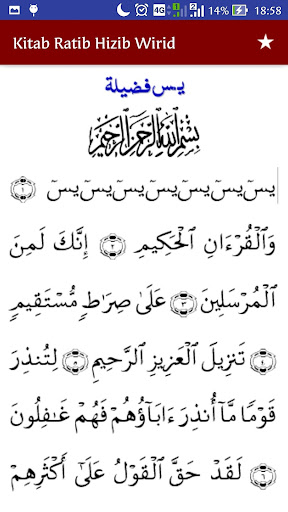 4G 14% 18:58
Kitab Ratib Hizib Wirid
يس فضيلة
بِسْمِ اللَّهِ الرَّحْمَنِ الرَّحِيمِ
يسٓ يسٓ يسٓ يسٓ يسٓ يسٓ يسٓ ١
وَٱلْقُرْءَانِ ٱلْحَكِيمِ ٢ إِنَّكَ لَمِنَ
ٱلْمُرْسَلِينَ ٣ عَلَىٰ صِرَٰطٍ مُّسْتَقِيمٍ
٤ تَنزِيلَ ٱلْعَزِيزِ ٱلرَّحِيمِ ٥ لِتُنذِرَ
قَوْمًا مَّآ أُنذِرَ ءَابَآؤُهُمْ فَهُمْ غَٰفِلُونَ
٦ لَقَدْ حَقَّ ٱلْقَوْلُ عَلَىٰٓ أَكْثَرِهِمْ